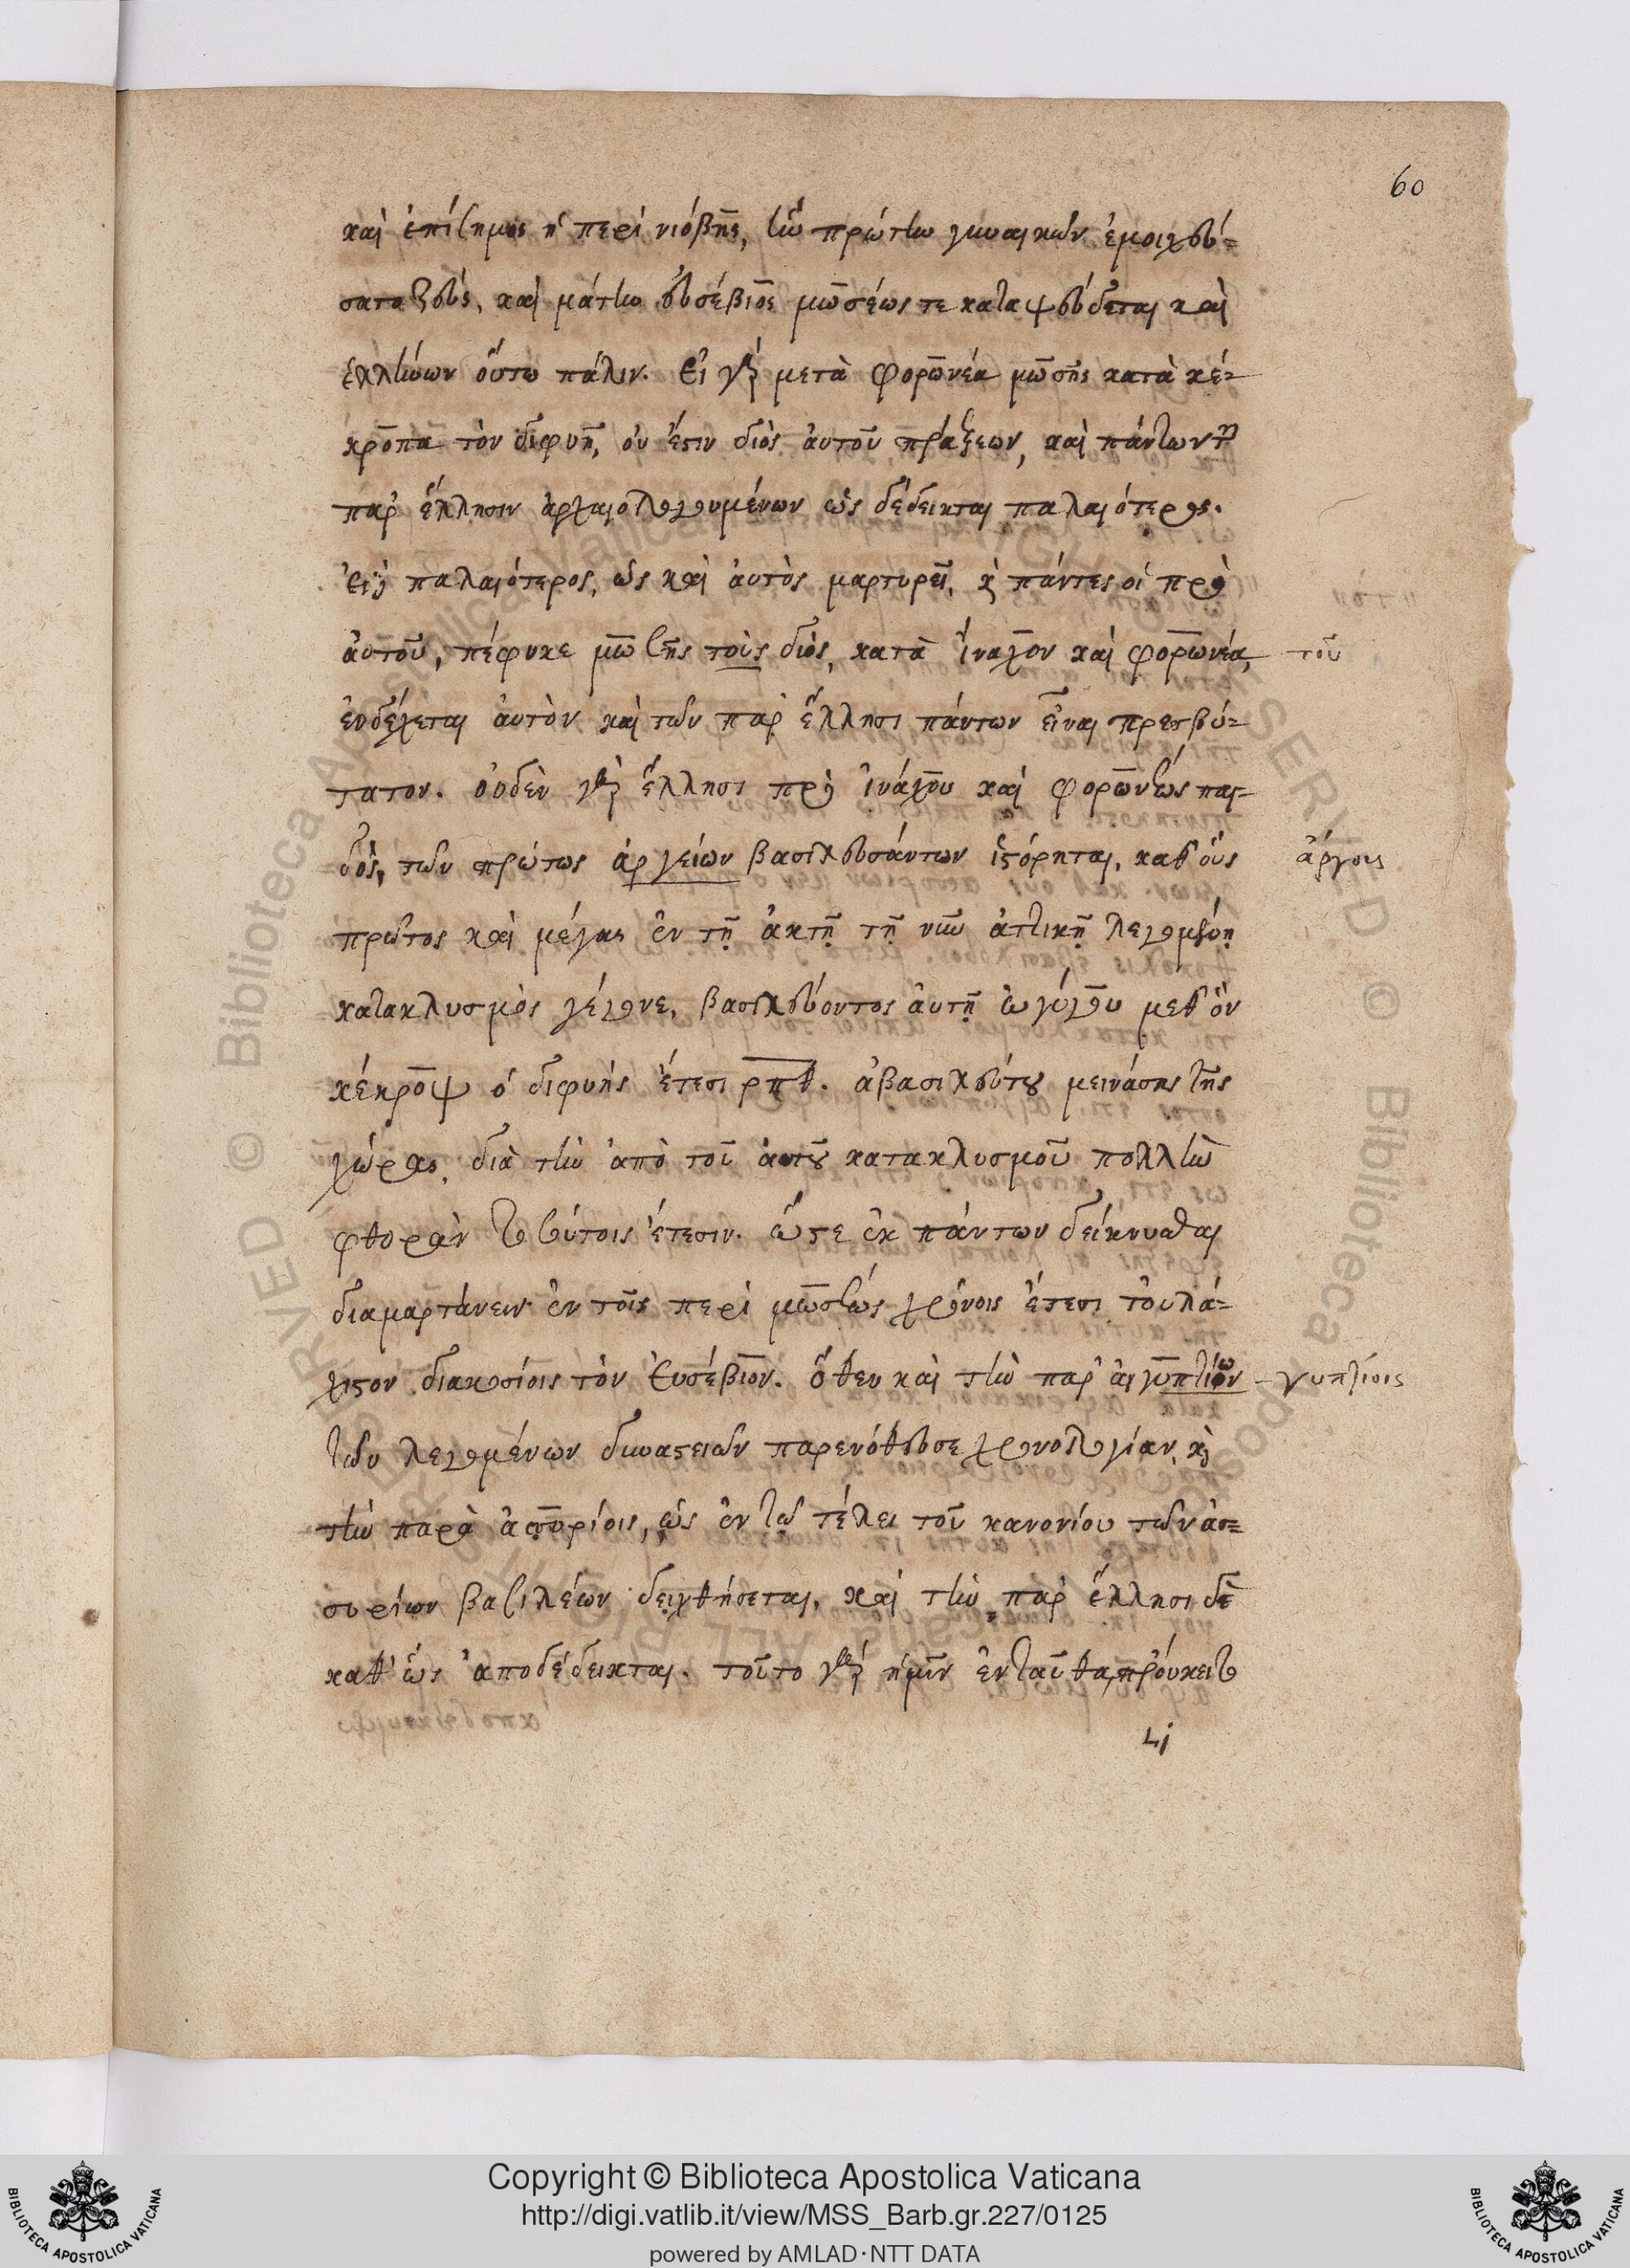 60
καὶ ἐπίσημος ἡ περὶ νιόβης, ἣν πρώτην γυναικῶν ἐμοιχεύ-
σατο ζεύς, καὶ μάτην εὐσέβιος μωσέως τε καταψεύδεται καὶ
ἑλλήνων οὕτω πάλιν. εἰ γὰρ μετὰ φορωνέα μωσῆς κατὰ κέ-
κροπα τὸν διφυῆ, οὐ ἔστιν διὸς αὐτοῦ πράξεων, καὶ πάντων τῶν
παρ' ἕλλησιν ἀρχαιολογουμένων ὡς δέδεικται παλαιότερος.
εἰ δὲ παλαιότερος, ὡς καὶ αὐτὸς μαρτυρεῖ, καὶ πάντες οἱ πρὸ
αὐτοῦ, πέφυκε μωσῆς τοὺς διὸς, κατὰ ἴναχον καὶ φορωνέα, τοῦ
ἐνδέχεται αὐτὸν καὶ τῶν παρ' ἕλλησι πάντων εἶναι πρεσβύ-
τατον. οὐδὲν γὰρ ἕλλησι πρὸ ἰνάχου καὶ φορωνέως παι-
δὸς, τῶν πρώτως ἀργείων βασιλευσάντων ἱστόρηται, καθ' οὓς ἄργους
πρῶτος καὶ μέγας ἐν τῇ ἀκτῇ τῇ νῦν ἀττικῇ λεγομένῃ
κατακλυσμὸς γέγονε, βασιλεύοντος αὐτῇ ὠγύγου μεθ' ὃν
κέκροψ ὁ διφυὴς ἔτεσι ρπθ. ἀβασιλεύτου μεινάσης τῆς
χώρας, διὰ τὴν ἀπὸ τοῦ αὐτοῦ κατακλυσμοῦ πολλὴν
φθορὰν τοσούτοις ἔτεσιν. ὥστε ἐκ πάντων δείκνυσθαι
διαμαρτάνειν ἐν τοῖς περὶ μωσέως χρόνοις ἔτεσι τοὐλά-
χιστον διακοσίοις τὸν Εὐσέβιον. ὅθεν καὶ τὴν παρ' αἰγυπτίων γυπτίοις
τῶν λεγομένων δυναστειῶν παρενόθευσε χρονολογίαν, καὶ
τὴν παρὰ ἀσσυρίοις, ὡς ἐν τῷ τέλει τοῦ κανονίου τῶν ἀσ-
συρίων βασιλέων δειχθήσεται, καὶ τὴν παρ' ἕλλησι δὲ
καθ' ὡς ἀποδέδεικται. τοῦτο γὰρ ἡμῖν ἐνταῦθα, προὔκειτο
Copyright © Biblioteca Apostolica Vaticana
http://digi.vatlib.it/view/MSS_Barb.gr.227/0125
powered by AMLAD·NTT DATA